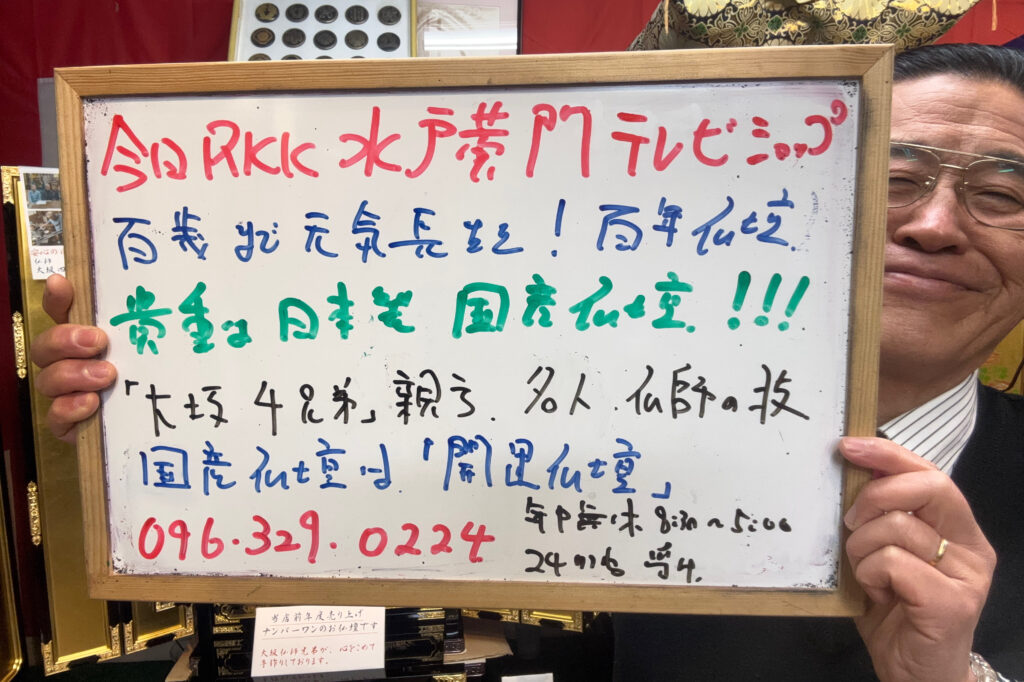 今日RKK 水戸黄門テレビショップ
百歳まで元気長生き！百年仏壇
貴重な日本製 国産仏壇!!!
「大坂4兄弟」親子. 名人 仏師の技
国産仏壇は「開运仏壇」
096.329.0224
年中無休 8:30～5:00
24 受付
当店前年度売り上げ
ナンバーワンのお仏壇です
大坂仏師兄弟が、心をこめて
手作りしております。